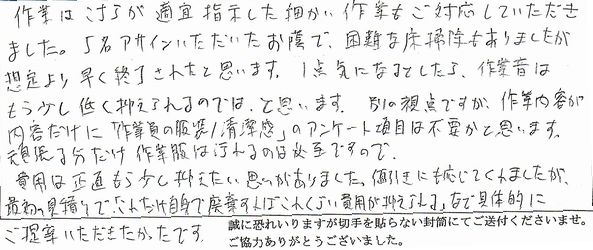 作業はこちらが適宜指示した細かい作業もご対応していただき
ました。5名アサインいただいたお蔭で、困難な床掃除もありましたが
想定より早く終了されたと思います。1点気になるとしたら、作業音は
もう少し低く抑えられるのでは、と思います。別の視点ですが、作業内容が
内容だけに「作業員の服装/清潔感」のアンケート項目は不要かと思います。
頑張る分だけ作業服は汚れるのは必至ですので。
費用は正直もう少し抑えたい思いがありました。値引きにも応じてくれましたが、
最初の見積りで「これだけ自身で廃棄すればこれくらい費用が抑えられる」など具体的に
ご提案いただきたかったです。
誠に恐れいりますが切手を貼らない封筒にてご送付くださいませ。
ご協力ありがとうございました。